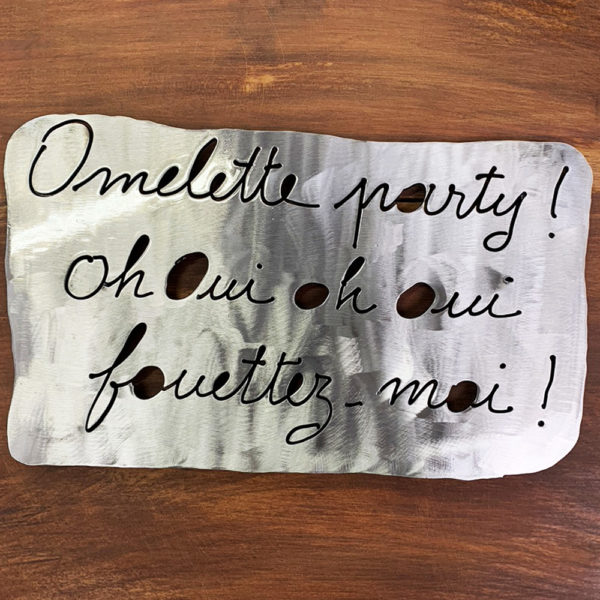 Omelette party !
Oh Oui oh oui
fouettez-moi !